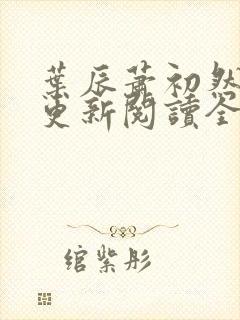 葉辰蕭初然
更新閱讀全
綰紫彤